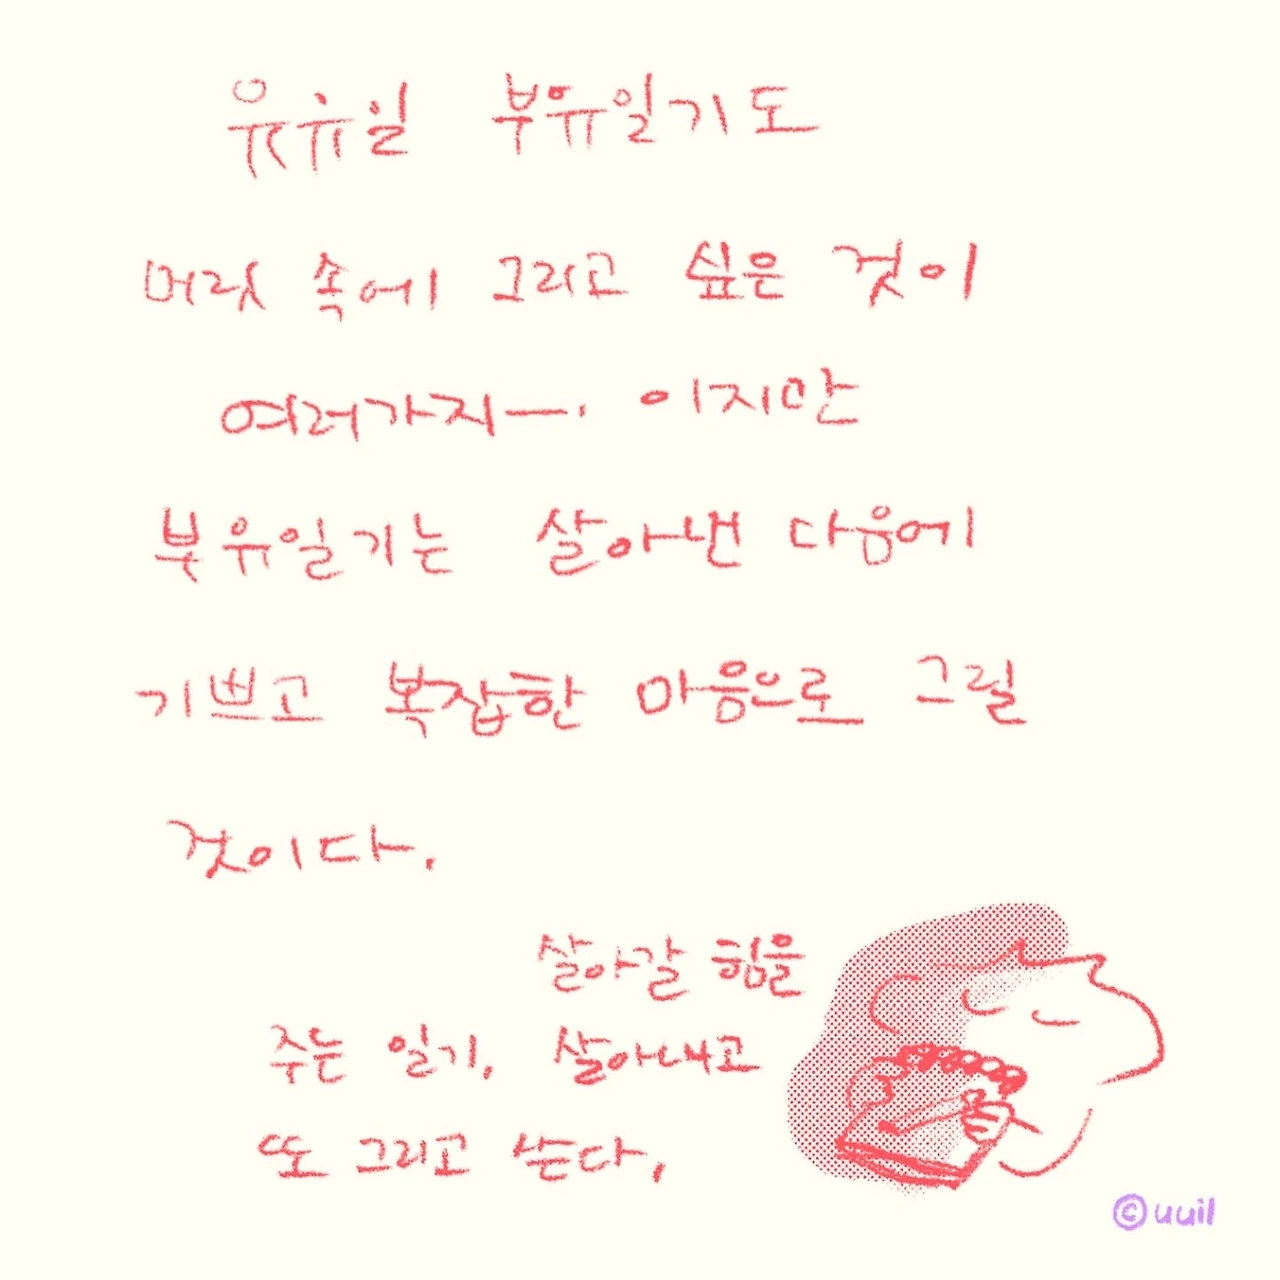 유유일 부유일기도
머릿 속에 그리고 싶은 것이
여러가지—. 이지만
부유일기는 살아낸 다음에
기쁘고 복잡한 마음으로 그릴
것이다.
살아갈 힘을
주는 일기, 살아내고
또 그리고 쓴다,
© uuil